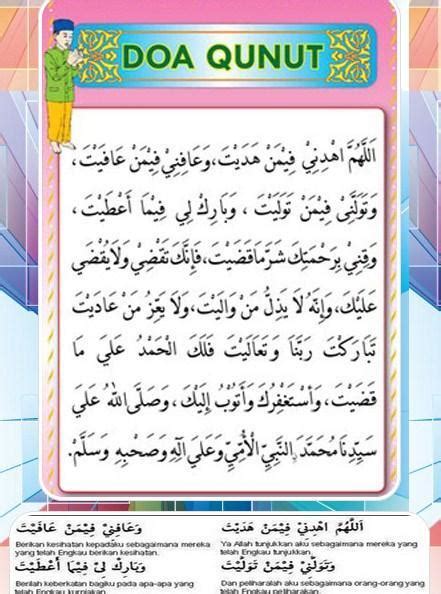 DOA QUNUT
اَللّٰهُمَّ اهْدِنِيْ فِيْمَنْ هَدَيْتَ، وَعَافِنِيْ فِيْمَنْ عَافَيْتَ،
وَتَوَلَّنِيْ فِيْمَنْ تَوَلَّيْتَ، وَبَارِكْ لِي فِيْمَا أَعْطَيْتَ،
وَقِنِيْ بِرَحْمَتِكَ شَرَّ مَا قَضَيْتَ، فَإِنَّكَ تَقْضِيْ وَلَا يُقْضَي
عَلَيْك، وَإِنَّهُ لَا يَذِلُّ مَنْ وَالَيْتَ، وَلَا يَعِزُّ مَنْ عَادَيْتَ
تَبَارَكْتَ رَبَّنَا وَتَعَالَيْتَ فَلَكَ الْحَمْدُ عَلَي مَا
قَضَيْتَ، وَأَسْتَغْفِرُكَ وَأَتُوْبُ إِلَيْكَ، وَصَلَّى اللهُ عَلَي
سَيِّدِنَا مُحَمَّدٍ النَّبِيِّ الْأُمِّيِّ وَعَلَي آلِهِ وَصَحْبِهِ وَسَلَّمْ.
اَللّٰهُمَّ اهْدِنِيْ فِيْمَنْ هَدَيْتَ
Ya Allah tunjukkan aku sebagaimana mereka yang
telah Engkau tunjukkan.
وَعَافِنِيْ فِيْمَنْ عَافَيْتَ
Berikan kesihatan kepadaku sebagaimana mereka
yang telah Engkau berikan kesihatan.
وَتَوَلَّنِيْ فِيْمَنْ تَوَلَّيْتَ
Dan peliharalah aku sebagaimana orang-orang yang
telah Engkau peliharakan.
وَبَارِكْ لِيْ فِيْمَا أَعْطَيْتَ
Berilah keberkatan bagiku pada apa-apa yang
telah Engkau kurniakan.